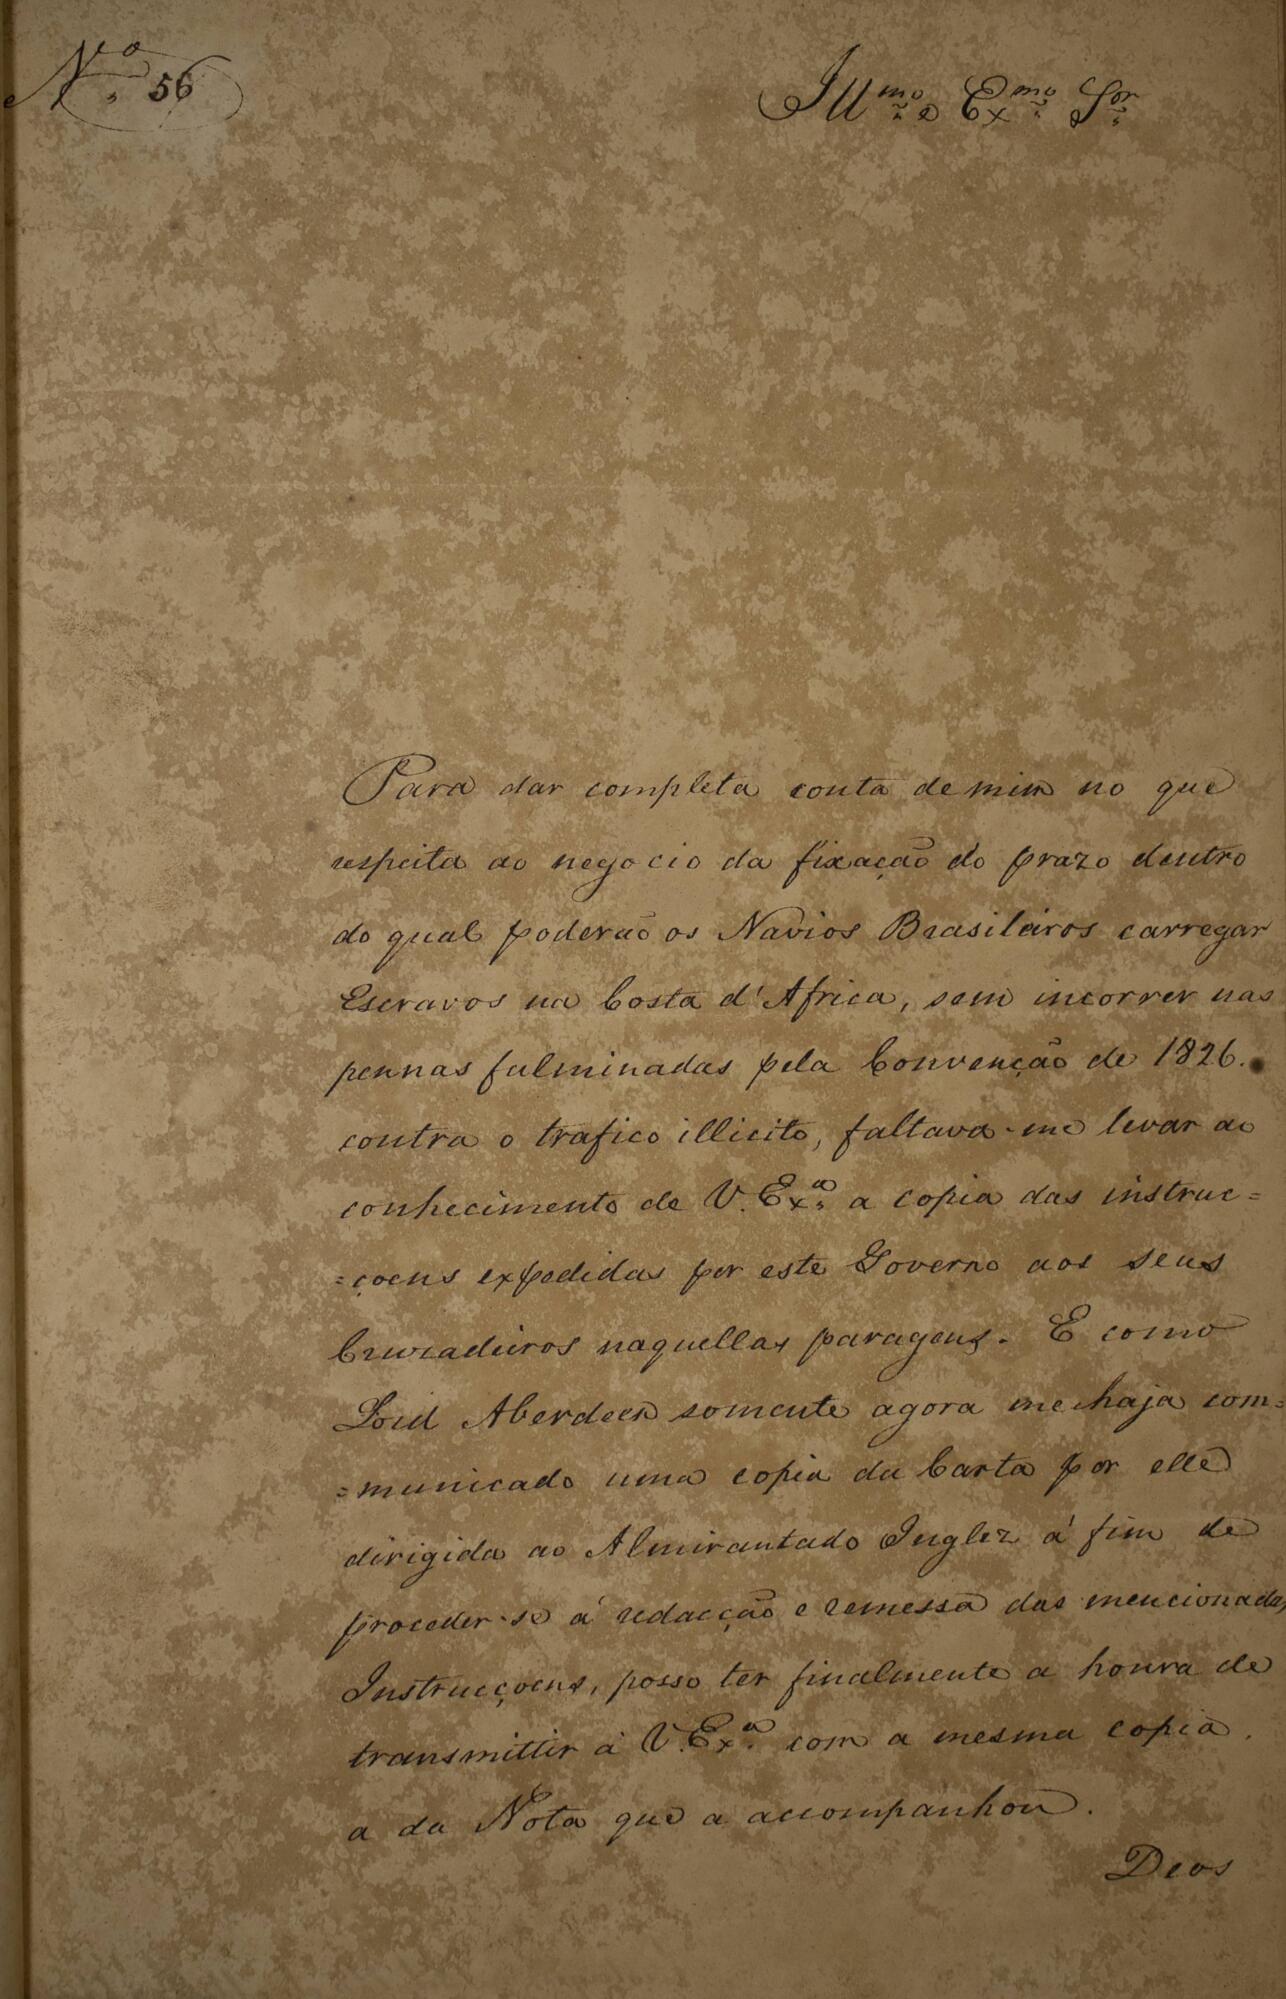 N.o 56
Ill.mo e Ex.mo S.or
Para dar completa conta de mim no que
respeita ao negocio da fixação do prazo dentro
do qual poderão os Navios Brasileiros carregar
Escravos na Costa d'Africa, sem incorrer nas
pennas fulminadas pela Convenção de 1826.
contra o trafico illicito, faltava-me levar ao
conhecimento de V. Ex.a a copia das instruc=
=çoens expedidas por este Governo aos seus
Cruzadeiros naquellas paragens. E como
Lord Aberdeen somente agora me haja com=
=municado uma copia da Carta por elle
dirigida ao Almirantado Inglez á fim de
proceder-se á redacção e remessa das mencionadas
Instrucçoens, posso ter finalmente a honra de
transmittir á V. Ex.a com a mesma copia
a da Nota que a accompanhou.
Deos